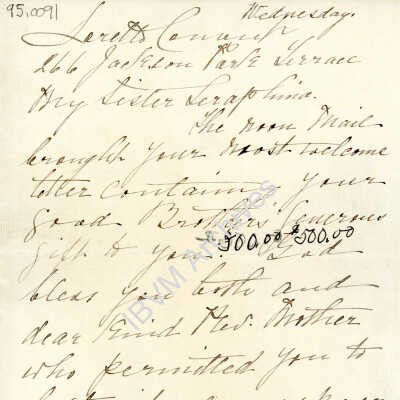 95.0091
Wednesday.
Loretto Convent
266 Jackson Park Terrace
My Sister Seraphina.
The noon Mail
brought your most welcome
letter containing your
good Brothers' generous
gift to you. $500.00 $500.00 God
bless you both and
dear kind Rev. Mother
who permitted you to
IBVM Archives